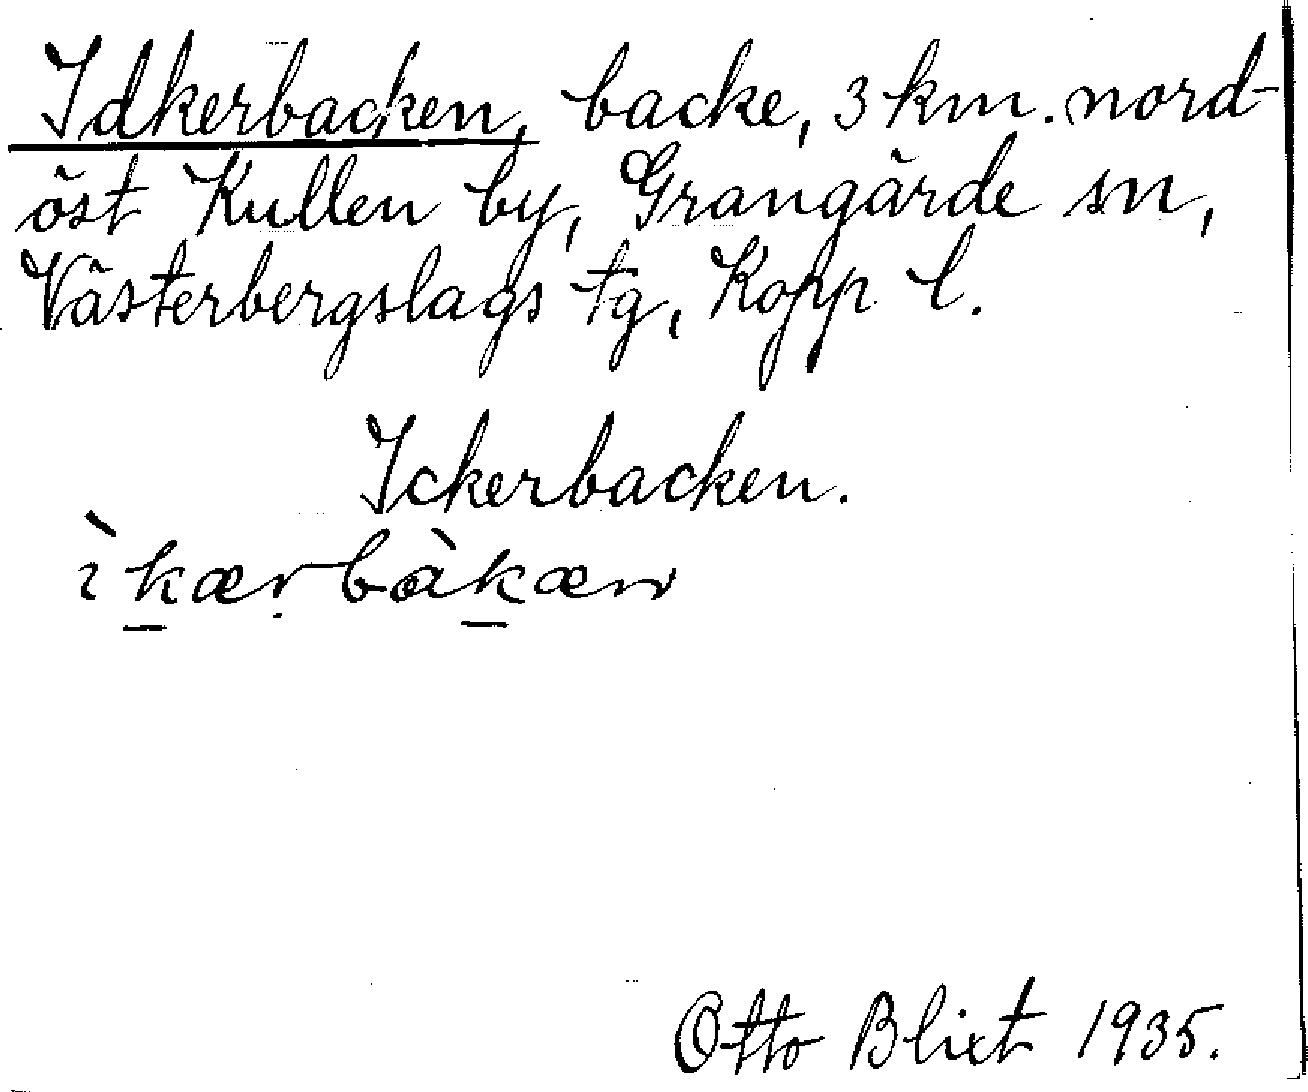 Idkerbacken, backe, 3 km. nord-
öst Kullen by, Grangärde sn,
Västerbergslags tg, Kopp l.
Ickerbacken.
ìkærbàkæn
Otto Blixt 1935.